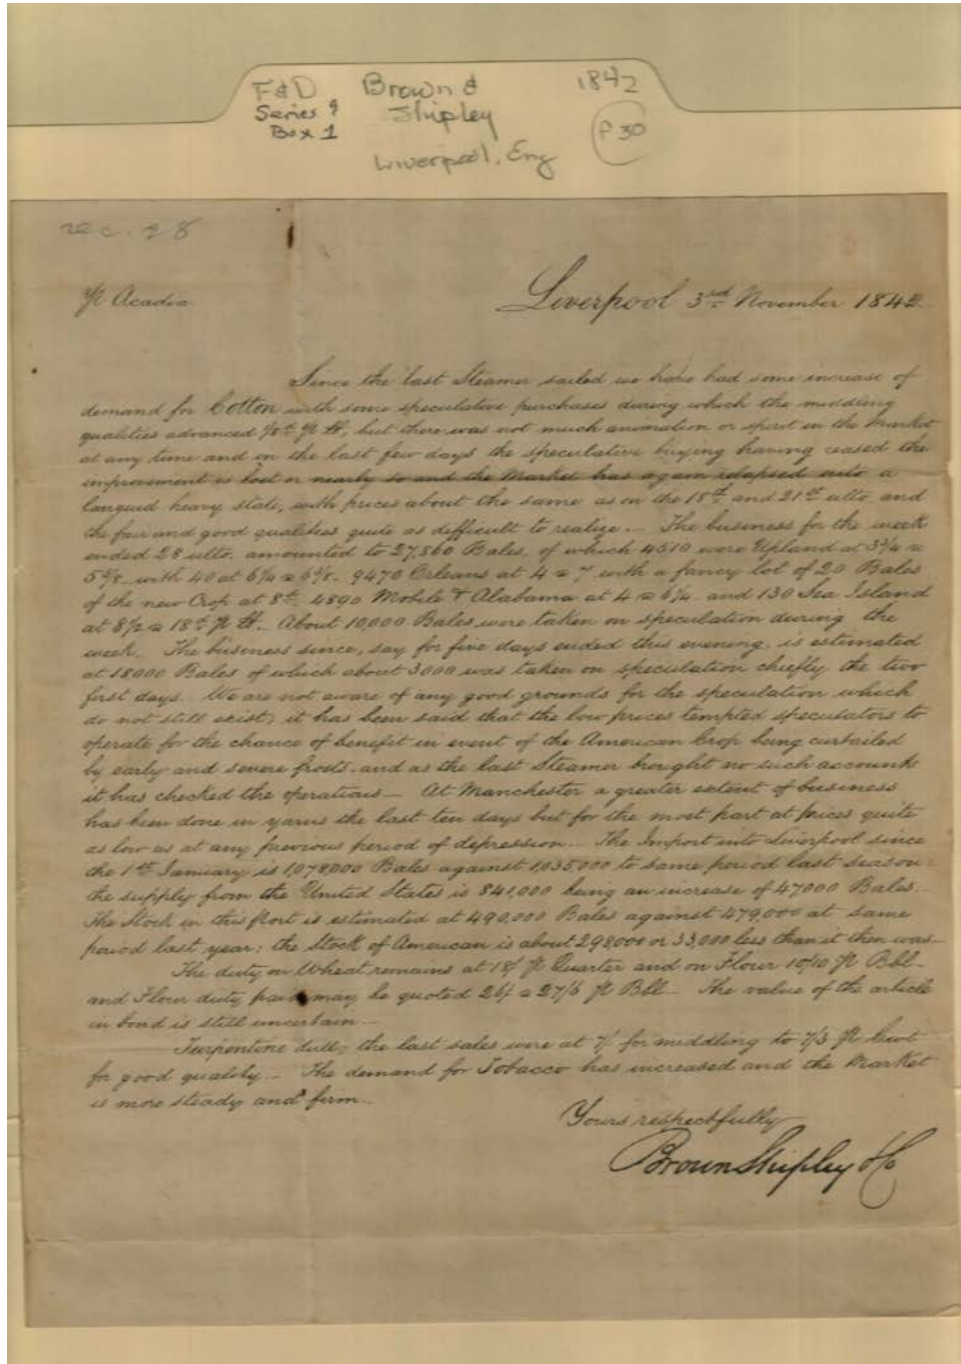 F&D Brown & 1842
Series 9 Shipley
Box 1 P 30
Liverpool, Eng
rec. 28
Pr Acadia
Liverpool 3rd November 1842
Since the last Steamer sailed we have had some increase of
demand for Cotton with some speculative purchases during which the middling
qualities advanced 1/8d pr lb, but there was not much animation or spirit in the Market
at any time and in the last few days the speculative buying having ceased the
improvement is lost or nearly so and the Market has again relapsed into a
languid heavy state, with prices about the same as on the 18th and 21st ulto. and
the fair and good qualities quite as difficult to realize.— The business for the week
ended 28 ulto. amounted to 27,860 Bales, of which 4510 were Upland at 3 3/4 a
5 7/8 with 40 at 6 1/4 a 6 3/8. 9470 Orleans at 4 a 7 with a fancy lot of 20 Bales
of the new Crop at 8d. 4890 Mobile & Alabama at 4 a 6 1/4 and 130 Sea Island
at 8 1/2 a 18d pr lb. About 10,000 Bales were taken on speculation during the
week. The business since, say for five days ended this evening, is estimated
at 18000 Bales of which about 3000 was taken on speculation chiefly the two
first days. We are not aware of any good grounds for the speculation which
do not still exist; it has been said that the low prices tempted speculators to
operate for the chance of benefit in event of the American Crop being curtailed
by early and severe frosts and as the last Steamer brought no such accounts
it has checked the operations— At Manchester a greater extent of business
has been done in yarns the last ten days but for the most part at prices quite
as low as at any previous period of depression.— The Import into Liverpool since
the 1st January is 1,078,000 Bales against 1,035,000 to same period last season:
the supply from the United States is 841,000 being an increase of 47000 Bales.
The Stock in this Port is estimated at 490,000 Bales against 479,000 at same
period last year: the Stock of American is about 298,000 or 33,000 less than it then was.—
The duty on Wheat remains at 18/ pr Quarter and on Flour 10/10 pr Bbl.
and Flour duty paid may be quoted 26/ a 27/6 pr Bbl— The value of the article
in bond is still uncertain—
Turpentine dull; the last sales were at 7/ for middling to 7/3 pr Cwt
for good quality— The demand for Tobacco has increased and the Market
is more steady and firm—
Yours respectfully
Brown Shipley & Co